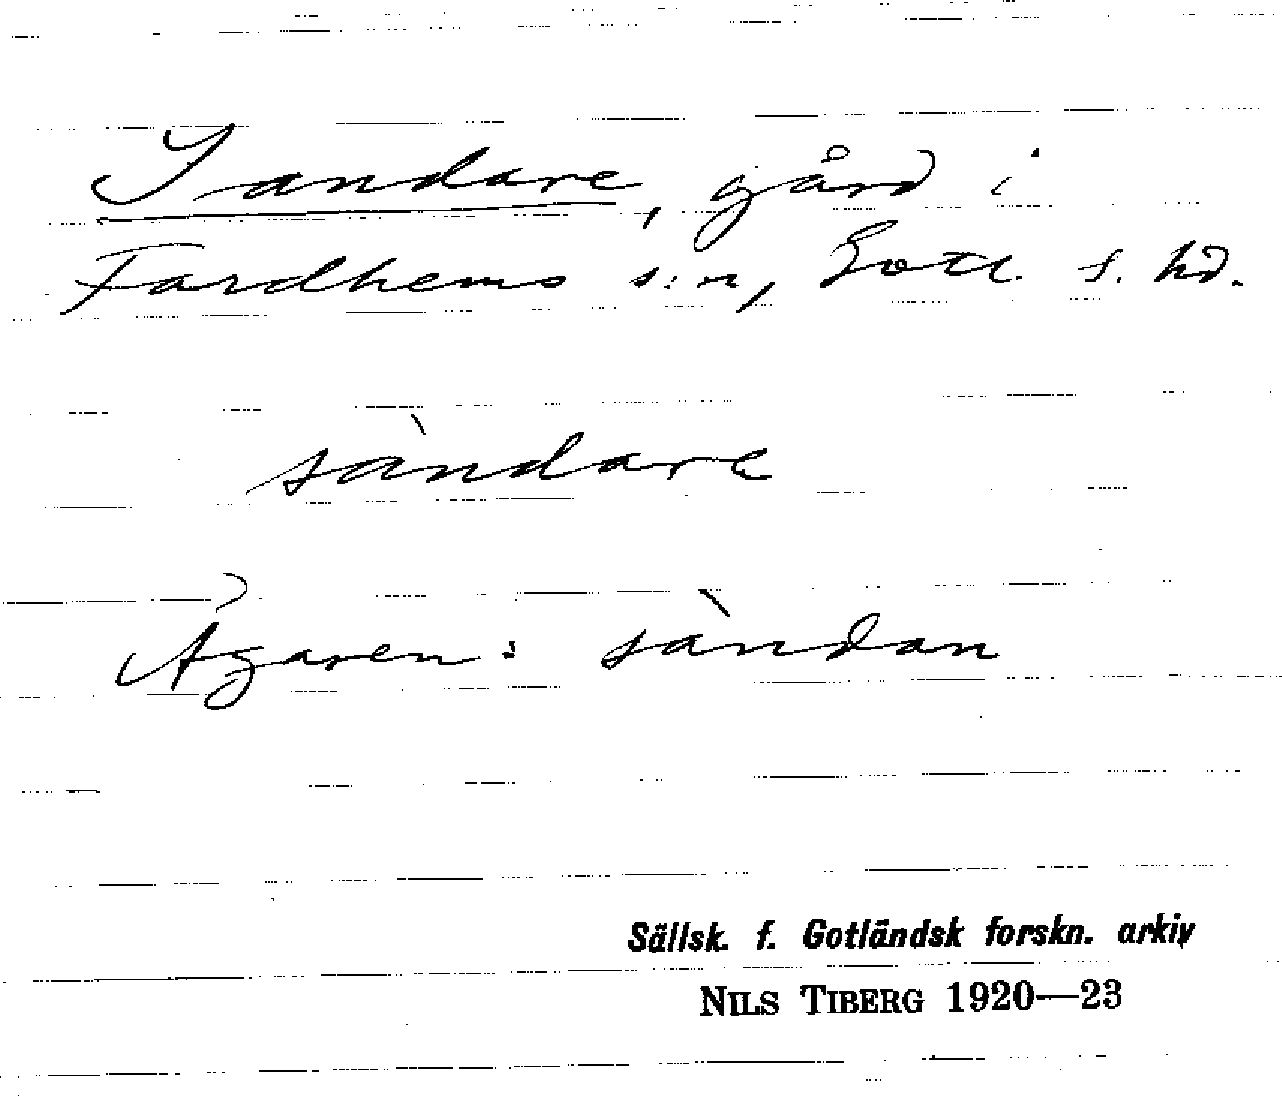 Sandare, gård i
Fardhems s:n, Gotl. s. hd.
sàndare
Ägaren: sàndan
Sällsk. f. Gotländsk forskn. arkiv
NILS TIBERG 1920—23